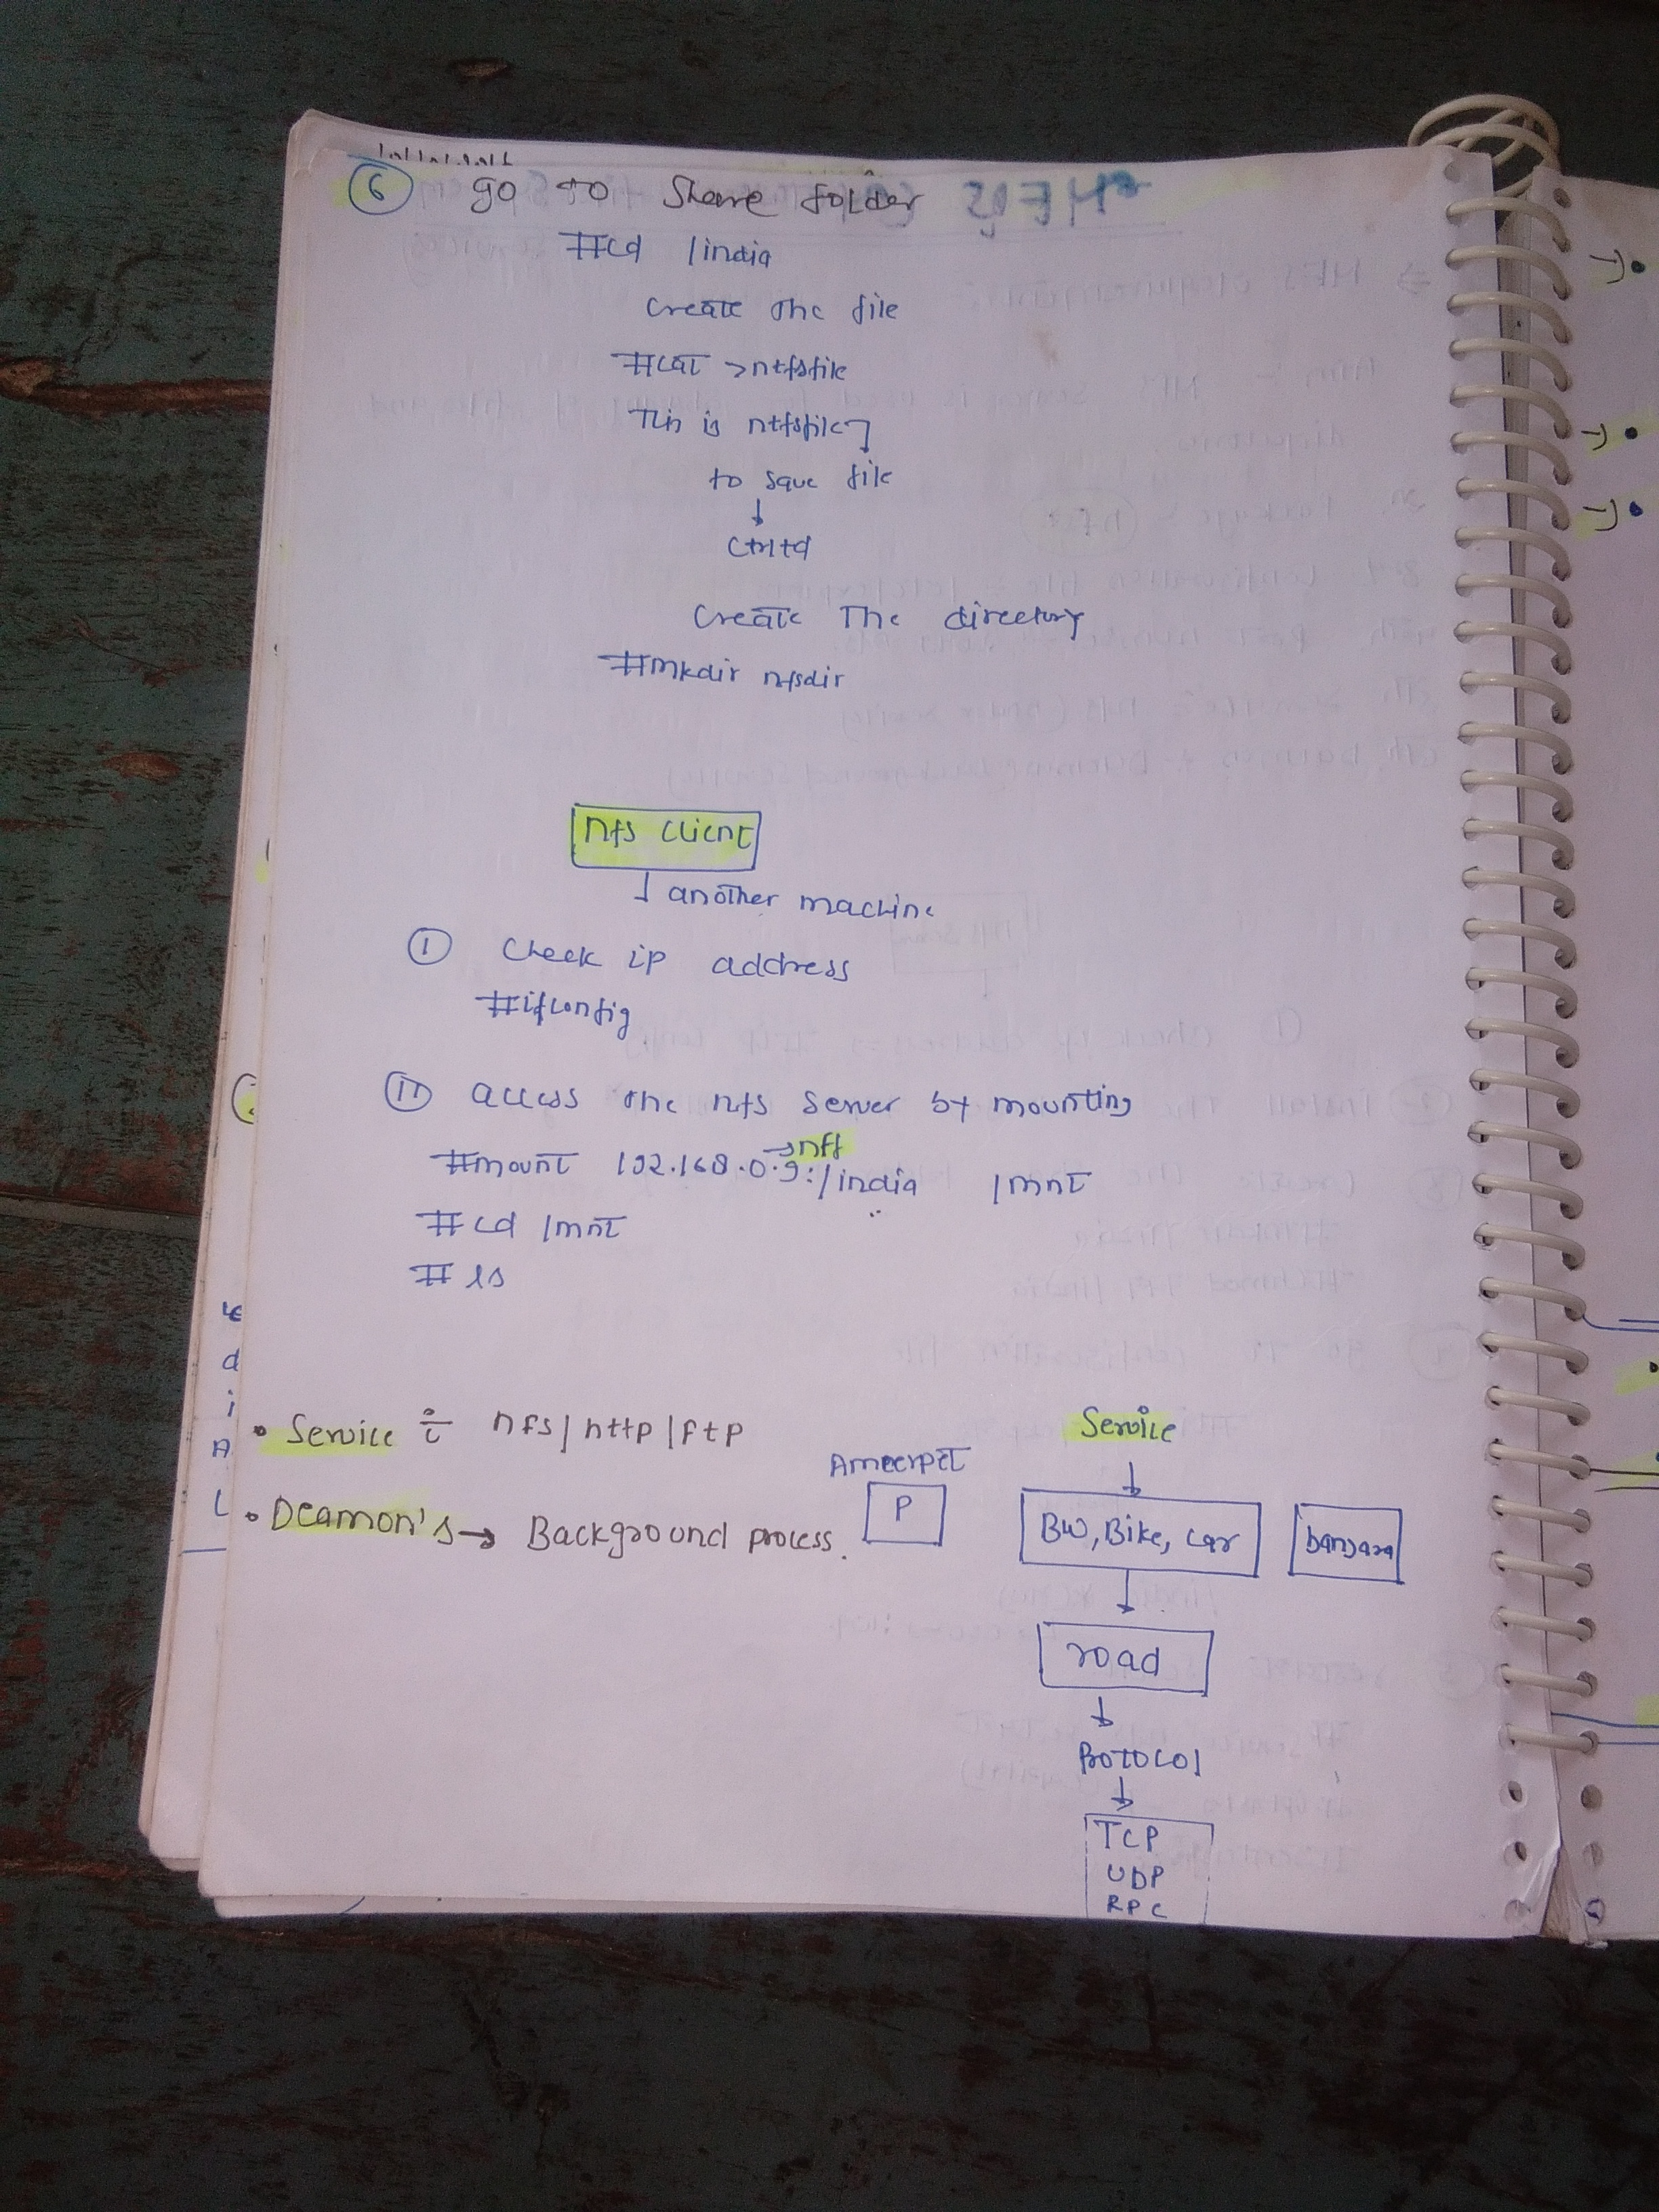 6 go to Share folder
#cd /india
create the file
#cat >ntfsfile
This is ntfsfile
to save file
ctrl+d
create The directory
#mkdir nfsdir
nfs client
another machine
I check ip address
#ifconfig
II access the nfs server by mounting
→nff
#mount 192.168.0.9:/india /mnt
#cd /mnt
#ls
• Service ÷ nfs/http/ftp
Service
Ameerpet
• Deamon's → Background process.
P
BW, Bike, car
banjara
road
Protocol
TCP
UDP
RPC